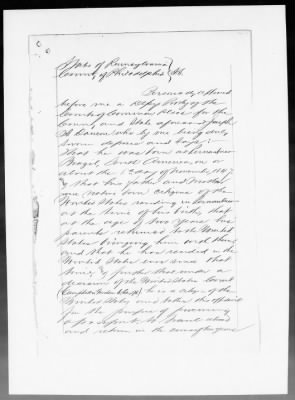 State of Pennsylvania }
County of Philadelphia } SS.
Personally appeared
before me a Depy Prothy of the
Court of Common Pleas for the
County and State aforesaid
who by me being duly
sworn deposes and says:
That he was born at Pernambuco
Brazil, South America, on or
about the 1st day of November 1847
& that his father and Mother
were Native born citizens of the
United States residing in Pernambuco
at the time of his birth, that
at the age of two years his
parents returned to the United
States bringing him with them
and that he has resided in the
United States ever since that
time, & further that under a
decision of the United States Court
he is a citizen of the
United States and makes this affidavit
for the purpose of procuring
a passport to travel abroad
and return in the